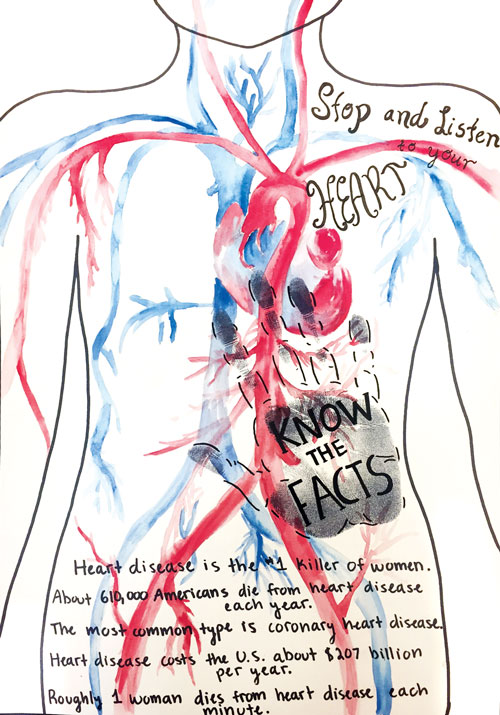 Stop and Listen
to your
HEART
KNOW
THE
FACTS
Heart disease is the #1 killer of women.
About 610,000 Americans die from heart disease
each year.
The most common type is coronary heart disease.
Heart disease costs the U.S. about $207 billion
per year.
Roughly 1 woman dies from heart disease each
minute.